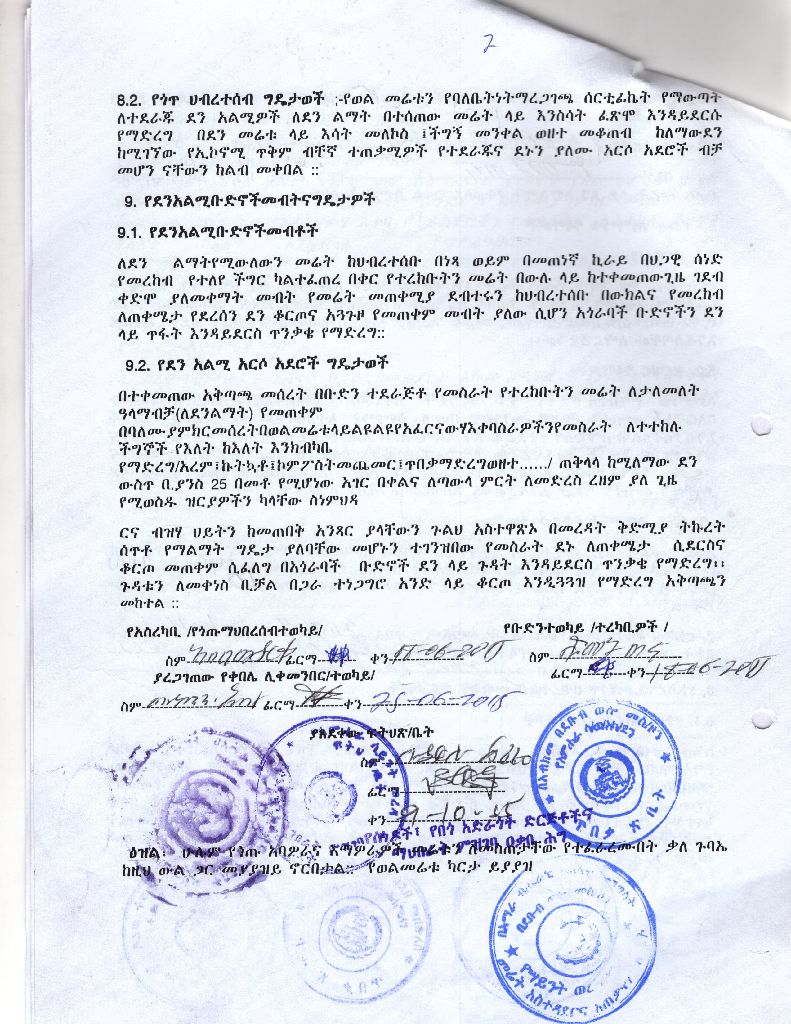 2
8.2. የጎጥ ህብረተሰብ ግዴታወች :-የወል መሬቱን የባለቤትነትማረጋገጫ ሰርቲፊኬት የማውጣት
ለተደራጁ ደን አልሚዎች ለደን ልማት በተሰጠው መሬት ላይ እንስሳት ፈጽሞ እንዳይደርሱ
የማድረግ በደን መሬቱ ላይ እሳት መለኮስ ፤ችግኝ መንቀል ወዘተ መቆጠብ ከለማውደን
ከሚገኘው የኢኮኖሚ ጥቅም ብቸኛ ተጠቃሚዎች የተደራጁና ደኑን ያለሙ አርሶ አደሮች ብቻ
መሆን ናቸውን ከልብ መቀበል ፡፡
9. የደንአልሚቡድኖችመብትናግዴታዎች
9.1. የደንአልሚቡድኖችመብቶች
ለደን ልማትየሚውለውን መሬት ከህብረተሰቡ በነጻ ወይም በመጠነኛ ኪራይ በህጋዊ ሰነድ
የመረከብ የተለየ ችግር ካልተፈጠረ በቀር የተረከቡትን መሬት በውሉ ላይ ከተቀመጠውጊዜ ገደብ
ቀድሞ ያለመቀማት መብት የመሬት መጠቀሚያ ደብተሩን ከህብረተሰቡ በውክልና የመረከብ
ለጠቀሜታ የደረሰን ደን ቆርጦና አጓጉዞ የመጠቀም መብት ያለው ሲሆን አጎራባች ቡድኖችን ደን
ላይ ጥፋት እንዳይደርስ ጥንቃቄ የማድረግ፡፡
9.2. የደን አልሚ አርሶ አደሮች ግዴታወች
በተቀመጠው አቅጣጫ መሰረት በቡድን ተደራጅቶ የመስራት የተረከቡትን መሬት ለታለመለት
ዓላማብቻ(ለደንልማት) የመጠቀም
በባለሙያምክርመሰረትበወልመሬቱላይልዩልዩየአፈርናውሃእቀባስራዎችንየመስራት ለተተከሉ
ችግኞች የእለት ከእለት እንክብካቤ
የማድረግ/አረም፤ኩትኳቶ፤ኮምፖስትመጨመር፤ጥበቃማድረግወዘተ....../ ጠቅላላ ከሚለማው ደን
ውስጥ ቢያንስ 25 በመቶ የሚሆነው አገር በቀልና ለጣውላ ምርት ለመድረስ ረዘም ያለ ጊዜ
የሚወስዱ ዝርያዎችን ካላቸው ስነምህዳ
ርና ብዝሃ ህይትን ከመጠበቅ አንጻር ያላቸውን ጉልህ አስተዋጽኦ በመረዳት ቅድሚያ ትኩረት
ሰጥቶ የማልማት ግዴታ ያለባቸው መሆኑን ተገንዝበው የመስራት ደኑ ለጠቀሜታ ሲደርስና
ቆርጦ መጠቀም ሲፈለግ በአጎራባች ቡድኖች ደን ላይ ጉዳት እንዳይደርስ ጥንቃቄ የማድረግ፡፡
ጉዳቱን ለመቀነስ ቢቻል በጋራ ተነጋግሮ አንድ ላይ ቆርጦ እንዲጓጓዝ የማድረግ አቅጣጫን
መከተል ፡፡
የአስረካቢ /የጎጡማህበረሰብተወካይ/ የቡድንተወካይ /ተረካቢዎች /
ስም ፊርማ ቀን ስም
ያረጋገጠው የቀበሌ ሊቀመንበር/ተወካይ/ ፊርማ ቀን
ስም ፊርማ ቀን 25-06-2015
ያጸደቀው ፍትህጽ/ቤት
ስም
ፊርማ
ቀን 9-10-15
የሰነዶች፣ የበጎ አድራጎት ድርጅቶችና
ማህበራት ምዝገባ
ዕዝል፡ ሁሉም የጎጡ አባዎራና እማዎራዎች መሬቱን ለመስጠታቸው የተፈራረሙበት ቃለ ጉባኤ
ከዚህ ውል ጋር መያያዝይ ኖርበታል፡፡ የወልመሬቱ ካርታ ይያያዝ